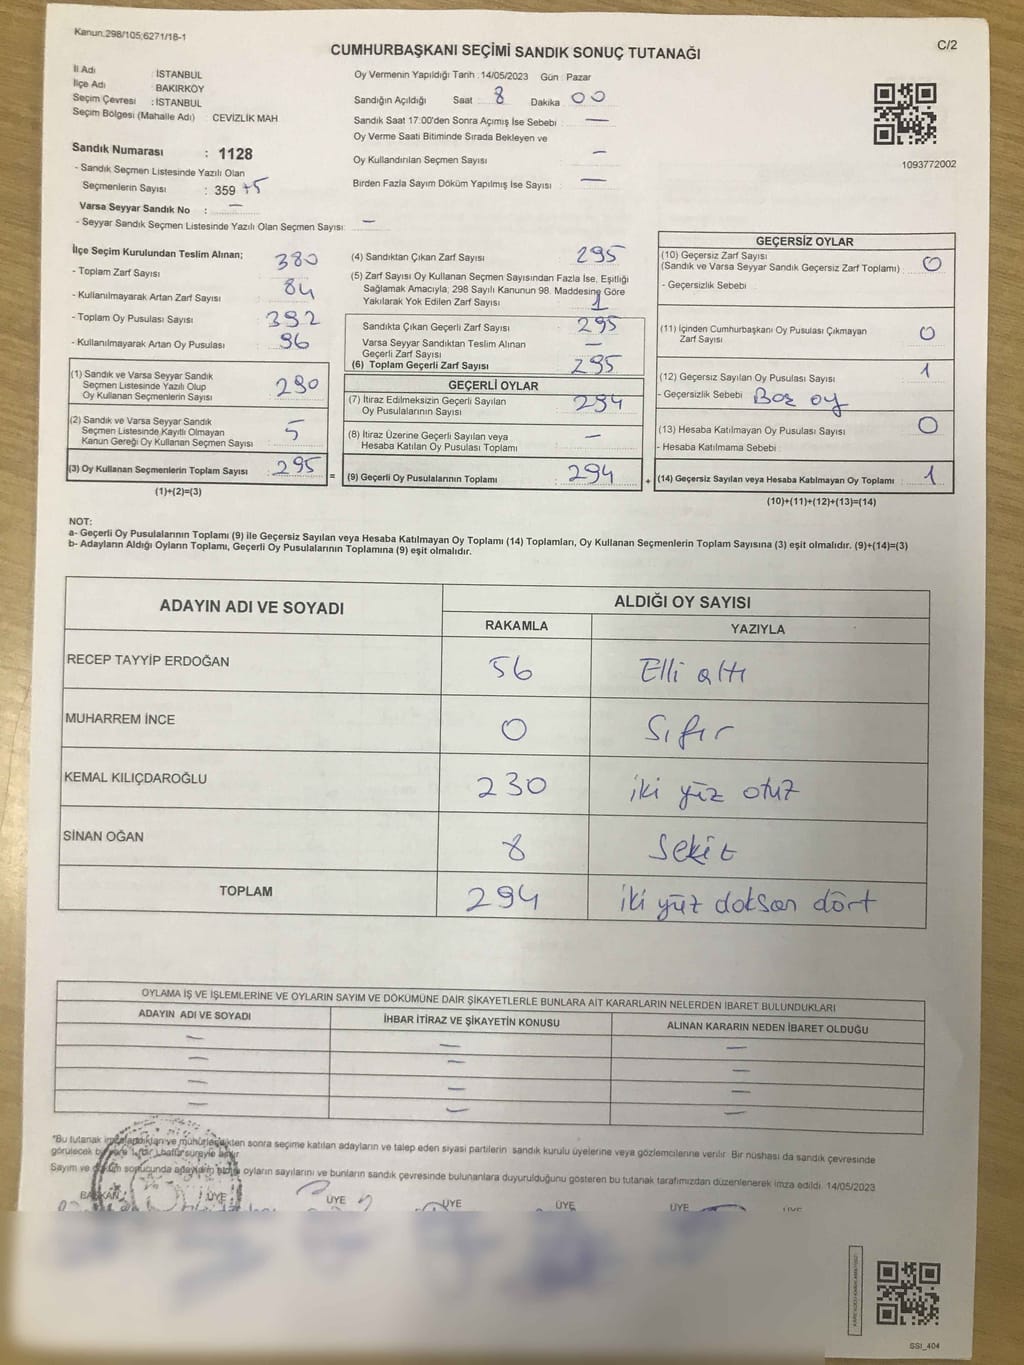 Kanun.298/105,6271/18-1
C/2
CUMHURBAŞKANI SEÇİMİ SANDIK SONUÇ TUTANAĞI
İl Adı : İSTANBUL
İlçe Adı : BAKIRKÖY
Seçim Çevresi : İSTANBUL
Seçim Bölgesi (Mahalle Adı) CEVİZLİK MAH
Sandık Numarası : 1128
- Sandık Seçmen Listesinde Yazılı Olan
Seçmenlerin Sayısı : 359 +5
Varsa Seyyar Sandık No : —
- Seyyar Sandık Seçmen Listesinde Yazılı Olan Seçmen Sayısı: —
Oy Vermenin Yapıldığı Tarih : 14/05/2023 Gün : Pazar
Sandığın Açıldığı Saat : 8 Dakika : 00
Sandık Saat 17:00'den Sonra Açımış İse Sebebi : —
Oy Verme Saati Bitiminde Sırada Bekleyen ve
Oy Kullandırılan Seçmen Sayısı —
Birden Fazla Sayım Döküm Yapılmış İse Sayısı : —
1093772002
İlçe Seçim Kurulundan Teslim Alınan;
- Toplam Zarf Sayısı 380
- Kullanılmayarak Artan Zarf Sayısı 84
- Toplam Oy Pusulası Sayısı 392
- Kullanılmayarak Artan Oy Pusulası 96
(1) Sandık ve Varsa Seyyar Sandık
Seçmen Listesinde Yazılı Olup
Oy Kullanan Seçmenlerin Sayısı 290
(2) Sandık ve Varsa Seyyar Sandık
Seçmen Listesinde Kayıtlı Olmayan
Kanun Gereği Oy Kullanan Seçmen Sayısı 5
(3) Oy Kullanan Seçmenlerin Toplam Sayısı : 295
(1)+(2)=(3)
(4) Sandıktan Çıkan Zarf Sayısı 295
(5) Zarf Sayısı Oy Kullanan Seçmen Sayısından Fazla İse, Eşitliği
Sağlamak Amacıyla, 298 Sayılı Kanunun 98. Maddesine Göre
Yakılarak Yok Edilen Zarf Sayısı 1
Sandıkta Çıkan Geçerli Zarf Sayısı 295
Varsa Seyyar Sandıktan Teslim Alınan
Geçerli Zarf Sayısı —
(6) Toplam Geçerli Zarf Sayısı 295
GEÇERLİ OYLAR
(7) İtiraz Edilmeksizin Geçerli Sayılan
Oy Pusulalarının Sayısı 294
(8) İtiraz Üzerine Geçerli Sayılan veya
Hesaba Katılan Oy Pusulası Toplamı —
= (9) Geçerli Oy Pusulalarının Toplamı 294
GEÇERSİZ OYLAR
(10) Geçersiz Zarf Sayısı
(Sandık ve Varsa Seyyar Sandık Geçersiz Zarf Toplamı) 0
- Geçersizlik Sebebi
(11) İçinden Cumhurbaşkanı Oy Pusulası Çıkmayan
Zarf Sayısı 0
(12) Geçersiz Sayılan Oy Pusulası Sayısı 1
- Geçersizlik Sebebi Boş oy
(13) Hesaba Katılmayan Oy Pusulası Sayısı 0
- Hesaba Katılmama Sebebi
+ (14) Geçersiz Sayılan veya Hesaba Katılmayan Oy Toplamı : 1
(10)+(11)+(12)+(13)=(14)
NOT:
a- Geçerli Oy Pusulalarının Toplamı (9) ile Geçersiz Sayılan veya Hesaba Katılmayan Oy Toplamı (14) Toplamları, Oy Kullanan Seçmenlerin Toplam Sayısına (3) eşit olmalıdır. (9)+(14)=(3)
b- Adayların Aldığı Oyların Toplamı, Geçerli Oy Pusulalarının Toplamına (9) eşit olmalıdır.
ADAYIN ADI VE SOYADI ALDIĞI OY SAYISI
RAKAMLA YAZIYLA
RECEP TAYYİP ERDOĞAN 56 Elli altı
MUHARREM İNCE 0 Sıfır
KEMAL KILIÇDAROĞLU 230 iki yüz otuz
SİNAN OĞAN 8 Sekiz
TOPLAM 294 iki yüz doksan dört
OYLAMA İŞ VE İŞLEMLERİNE VE OYLARIN SAYIM VE DÖKÜMÜNE DAİR ŞİKAYETLERLE BUNLARA AİT KARARLARIN NELERDEN İBARET BULUNDUKLARI
ADAYIN ADI VE SOYADI İHBAR İTİRAZ VE ŞİKAYETİN KONUSU ALINAN KARARIN NEDEN İBARET OLDUĞU
— — —
— — —
— — —
— — —
*Bu tutanak imzalandıktan ve mühürlendikten sonra seçime katılan adayların ve talep eden siyasi partilerin sandık kurulu üyelerine ve gözlemcilerine verilir. Bir nüshası da sandık çevresinde
görülecek bir yere 1 (bir) hafta süreyle asılır.
Sayım ve döküm sonucunda adayların aldığı oyların sayılarını ve bunların sandık çevresinde bulunanlara duyurulduğunu gösteren bu tutanak tarafımızdan düzenlenerek imza edildi. 14/05/2023
BAŞKAN ÜYE ÜYE ÜYE ÜYE ÜYE ÜYE
SSİ_404